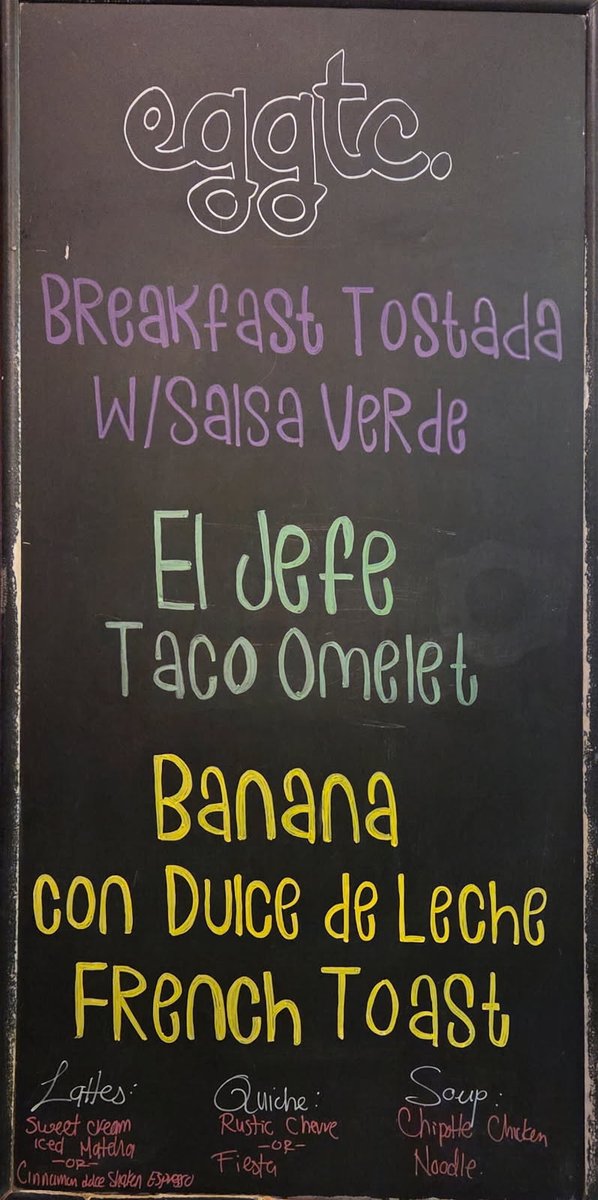 eggtc.
Breakfast Tostada
W/Salsa Verde
El Jefe
Taco Omelet
Banana
con Dulce de Leche
French Toast
Lattes:
Sweet cream
iced Matcha
-OR-
Cinnamon dulce Shaken Espresso
Quiche:
Rustic Chevre
-OR-
Fiesta
Soup:
Chipotle Chicken
Noodle.